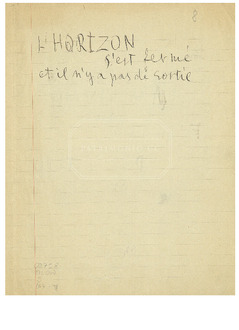 8
L'HORIZON
s'est fermé
et il n'y a pas de sortie